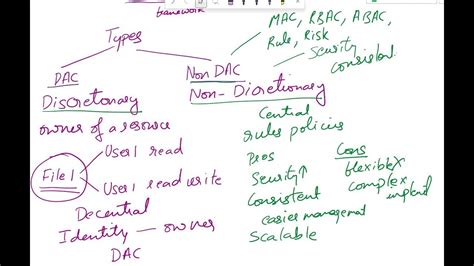 framework
Types
MAC, RBAC, ABAC,
Rule, Risk
Security
consistent.
DAC
Discretionary
owner of a resource
File 1
User1 read
User1 read write
Decentral
Identity — owner
DAC
Non DAC
Non-Dicretionary
Central
rules policies
Pros
Security ↑
Consistent
easier managemat
Scalable
Cons
flexible X
complex
implent